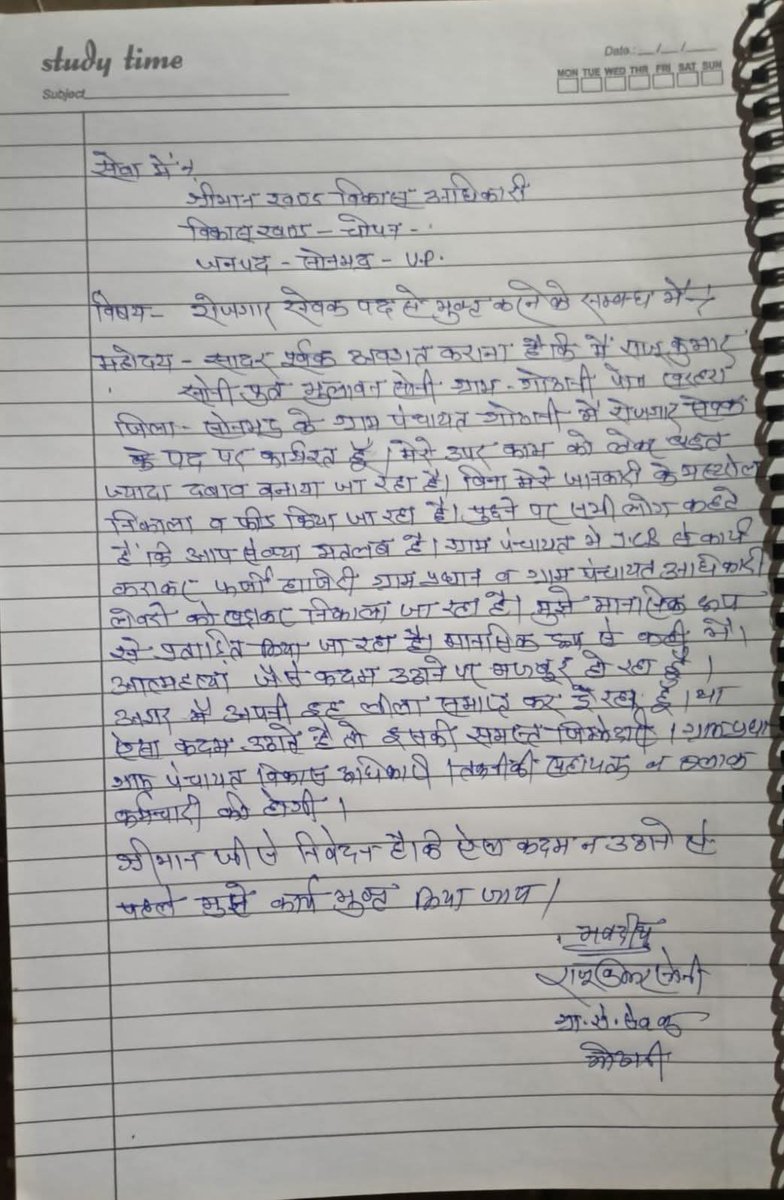 study time
Date: __/__/__
MON TUE WED THR FRI SAT SUN
Subject
सेवा में,
श्रीमान खण्ड विकास अधिकारी
विकास खण्ड - चोपन -
जनपद - सोनभद्र - U.P.
विषय - रोजगार सेवक पद से मुक्त करने के सम्बन्ध में -
महोदय - सादर पूर्वक अवगत कराना है कि मैं राजू कुमार
सोनी पुत्र भुलावन सोनी ग्राम - गोठानी पोस्ट
जिला - सोनभद्र के ग्राम पंचायत गोठानी में रोजगार सेवक
के पद पर कार्यरत हूँ। मेरे उपर काम को लेकर बहुत
ज्यादा दबाव बनाया जा रहा है। बिना मेरे जानकारी के मस्टरोल
निकाला व फीड किया जा रहा है। पुछने पर सभी लोग कहते
हैं कि आप से क्या मतलब है। ग्राम पंचायत में J.C.B से कार्य
कराकर फर्जी हाजिरी ग्राम प्रधान व ग्राम पंचायत अधिकारी
लेबरो को खड़ाकर निकाला जा रहा है। मुझे मानसिक रूप
से प्रताड़ित किया जा रहा है। मानसिक रूप से कही मैं।
आत्महत्या जैसे कदम उठाने पर मजबूर हो रहा हूँ।
अगर मैं अपनी इह लीला समाप्त कर दे रहा हूँ। या
ऐसा कदम उठाते है तो इसकी समस्त जिम्मेदारी। ग्राम प्रधान
ग्राम पंचायत विकास अधिकारी। तकनीकी सहायक व ब्लाक
कर्मचारी की होगी।
श्रीमान जी से निवेदन है। कि ऐसा कदम न उठाने से
पहले मुझे कार्य मुक्त किया जाय।
भवदीय
राजू कुमार सोनी
ग्रा. रो. सेवक
गोठानी